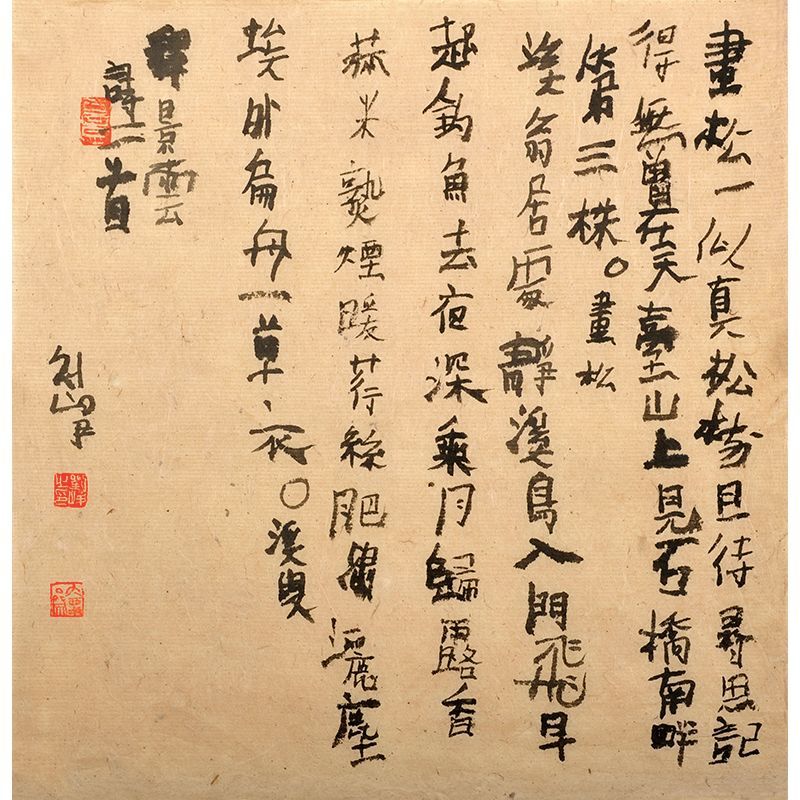 畫松一似真松樹且待尋思記
得無曾在天臺山上見石橋南畔
第三株。畫松
溪翁居處靜溪鳥入門飛早
起釣魚去夜深乘月歸露香
菰米熟煙暖荇絲肥瀟灑塵
埃外扁舟一草衣。溪叟
釋景雲
詩二首